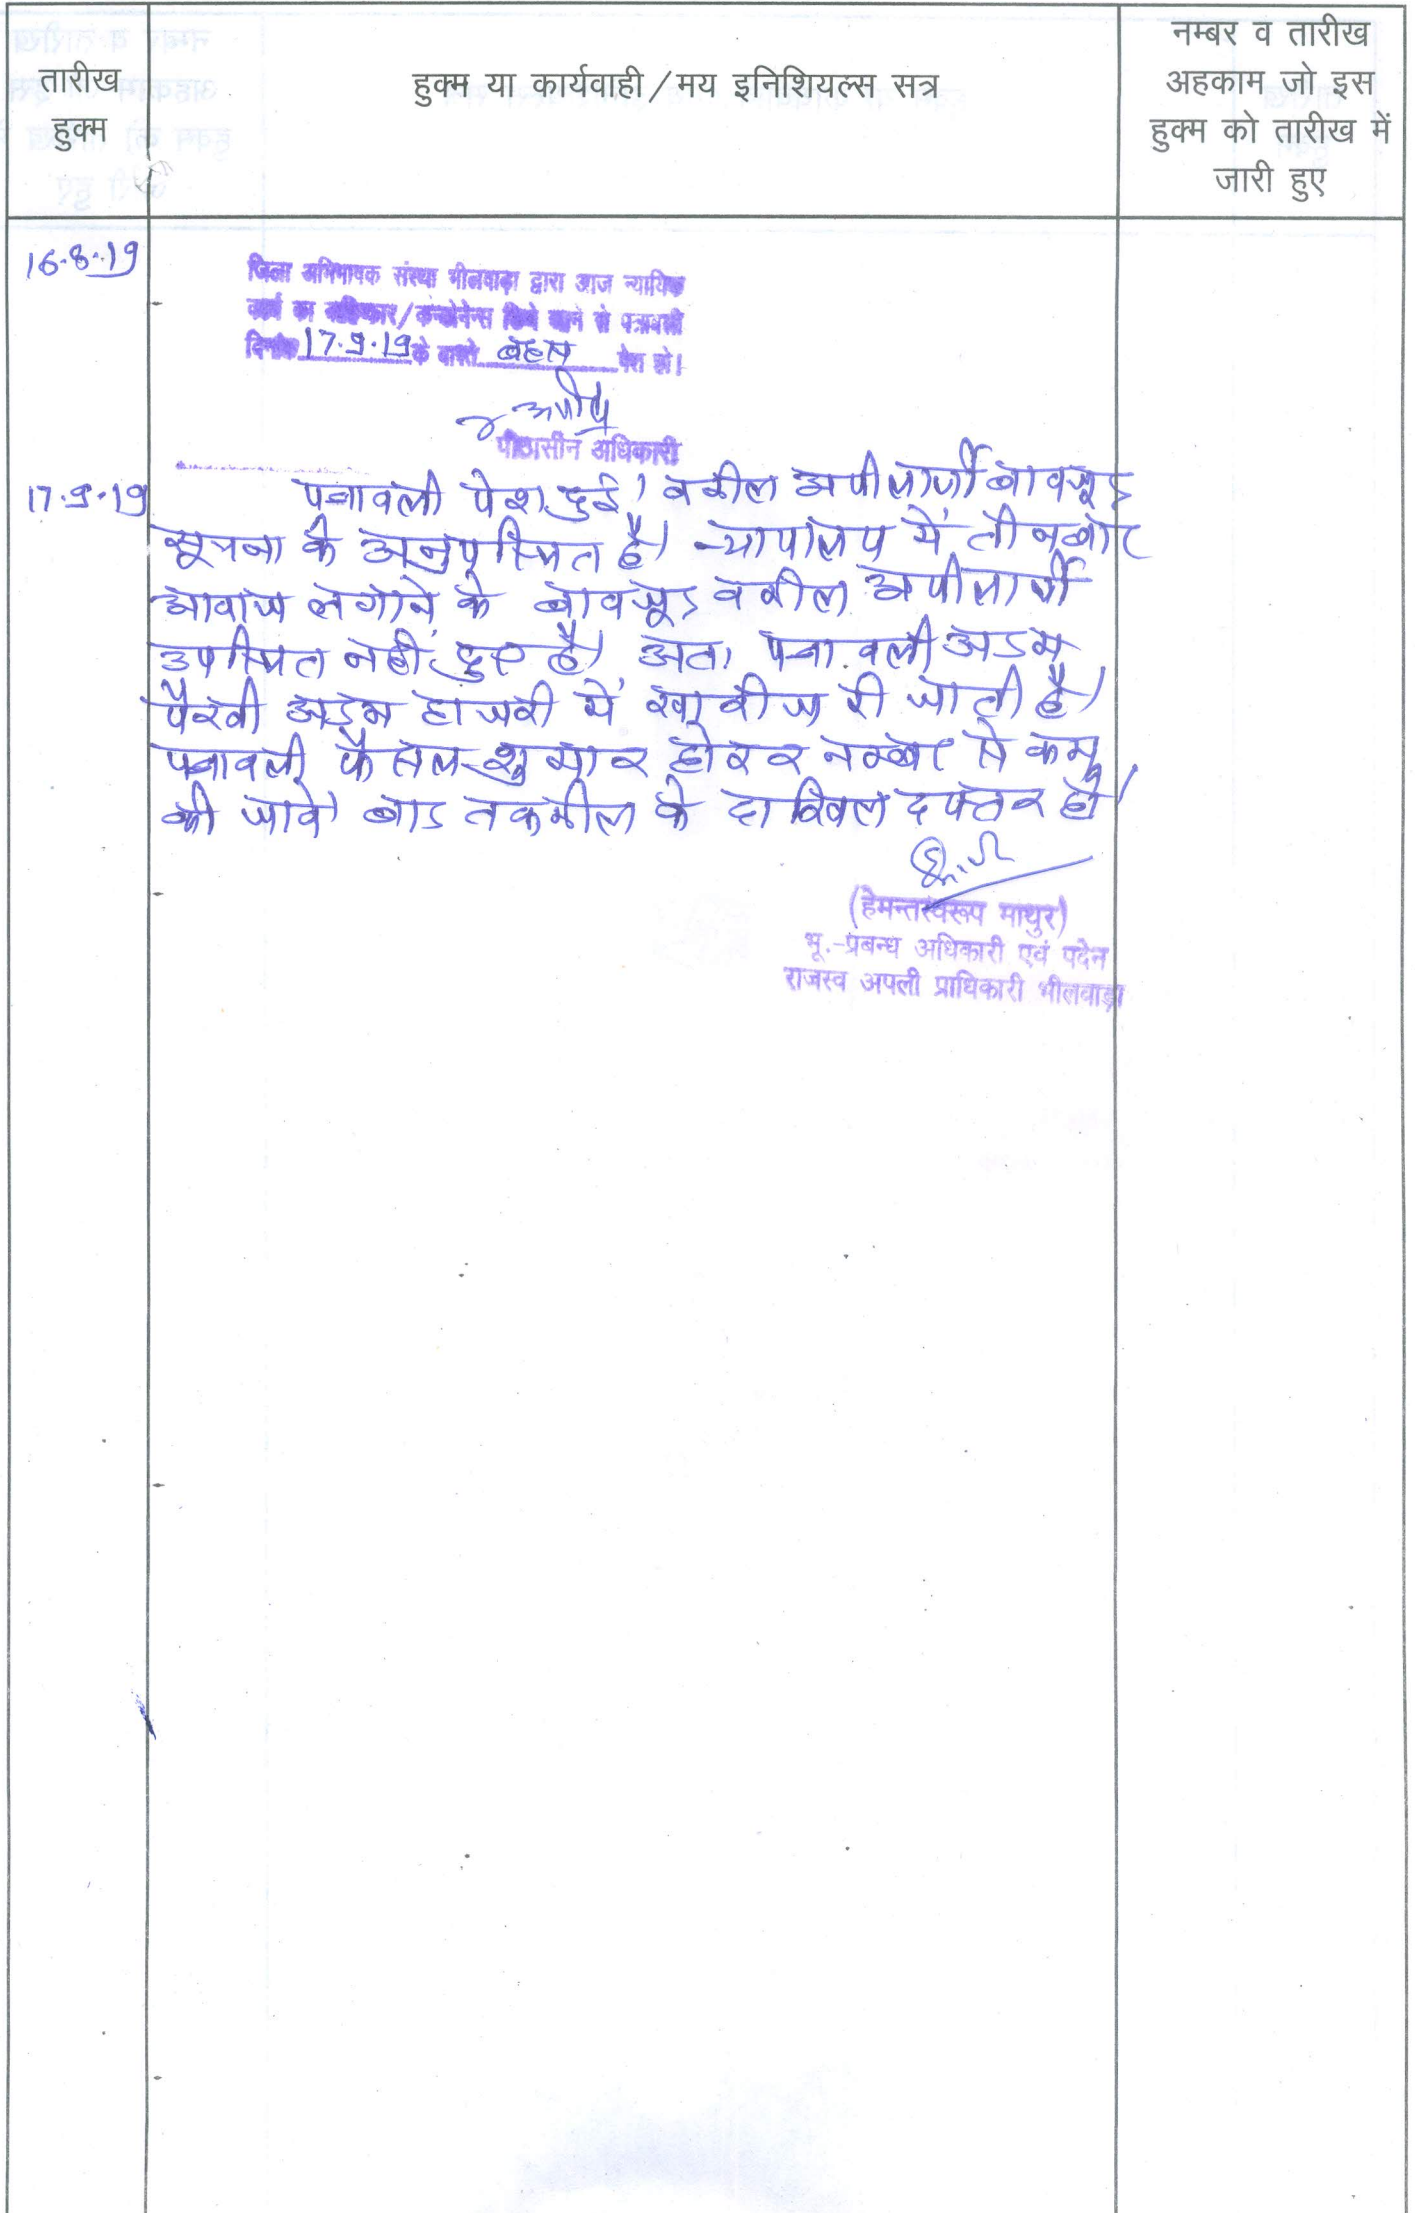 तारीख
हुक्म
हुक्म या कार्यवाही/मय इनिशियल्स सत्र
नम्बर व तारीख
अहकाम जो इस
हुक्म को तारीख में
जारी हुए
16.8.19
जिला अभिभाषक संस्था भीलवाड़ा द्वारा आज न्यायिक
कार्य का बहिष्कार/कन्डोलेन्स किये जाने से पत्रावली
दिनांक 17.9.19 के वास्ते बहस पेश हो।
पीठासीन अधिकारी
17.9.19
पत्रावली पेश हुई। वकील अपीलार्थी बावजूद
सूचना के अनुपस्थित है। न्यायालय में तीन बार
आवाज लगाने के बावजूद वकील अपीलार्थी
उपस्थित नहीं हुए है। अतः पत्रावली अदम
पैरवी अदम हाजरी में खारीज की जाती है।
पत्रावली फैसल शुमार होकर नम्बर से कम
की जावे। बाद तकमील के दाखिल दफ्तर हो।
(हेमन्तस्वरूप माथुर)
भू.-प्रबन्ध अधिकारी एवं पदेन
राजस्व अपली प्राधिकारी भीलवाड़ा